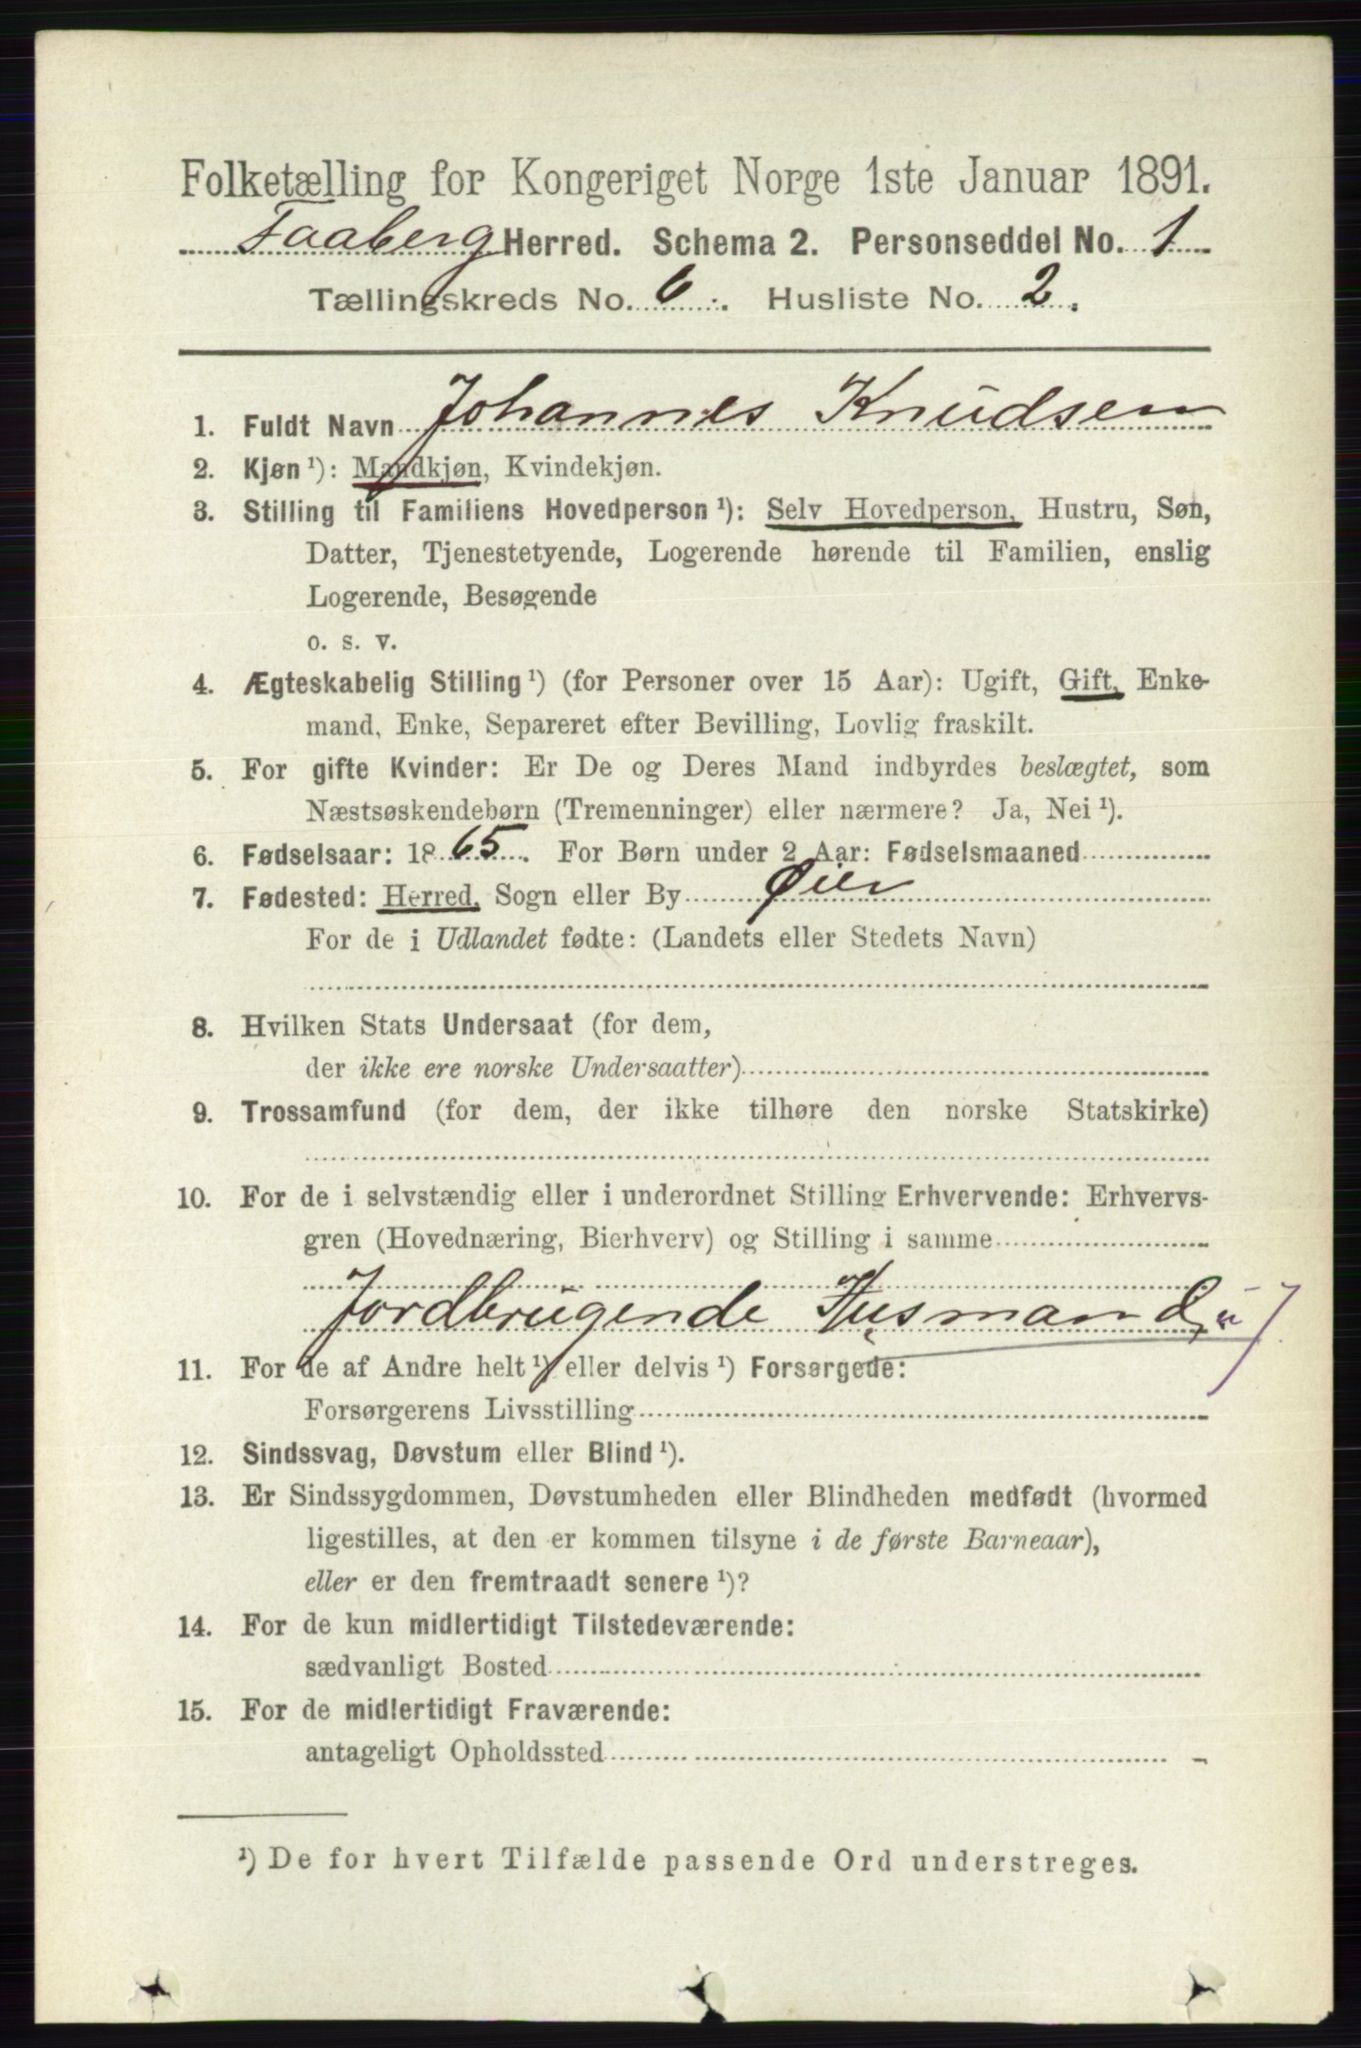 Folketælling for Kongeriget Norge 1ste Januar 1891.
Faaberg Herred. Schema 2. Personseddel No. 1
Tællingskreds No. 6. Husliste No. 2.
1. Fuldt Navn Johannes Knudsen
2. Kjøn ¹): Mandkjøn, Kvindekjøn.
3. Stilling til Familiens Hovedperson ¹): Selv Hovedperson, Hustru, Søn,
Datter, Tjenestetyende, Logerende hørende til Familien, enslig
Logerende, Besøgende
o. s. v.
4. Ægteskabelig Stilling ¹) (for Personer over 15 Aar): Ugift, Gift, Enke-
mand, Enke, Separeret efter Bevilling, Lovlig fraskilt.
5. For gifte Kvinder: Er De og Deres Mand indbyrdes beslægtet, som
Næstsøskendebørn (Tremenninger) eller nærmere? Ja, Nei ¹).
6. Fødselsaar: 1865. For Børn under 2 Aar: Fødselsmaaned
7. Fødested: Herred, Sogn eller By Øier
For de i Udlandet fødte: (Landets eller Stedets Navn)
8. Hvilken Stats Undersaat (for dem,
der ikke ere norske Undersaatter)
9. Trossamfund (for dem, der ikke tilhøre den norske Statskirke)
10. For de i selvstændig eller i underordnet Stilling Erhvervende: Erhvervs-
gren (Hovednæring, Bierhverv) og Stilling i samme
Jordbrugende Husmand
11. For de af Andre helt ¹) eller delvis ¹) Forsørgede:
Forsørgerens Livsstilling
12. Sindssvag, Døvstum eller Blind ¹).
13. Er Sindssygdommen, Døvstumheden eller Blindheden medfødt (hvormed
ligestilles, at den er kommen tilsyne i de første Barneaar),
eller er den fremtraadt senere ¹)?
14. For de kun midlertidigt Tilstedeværende:
sædvanligt Bosted
15. For de midlertidigt Fraværende:
antageligt Opholdssted
¹) De for hvert Tilfælde passende Ord understreges.